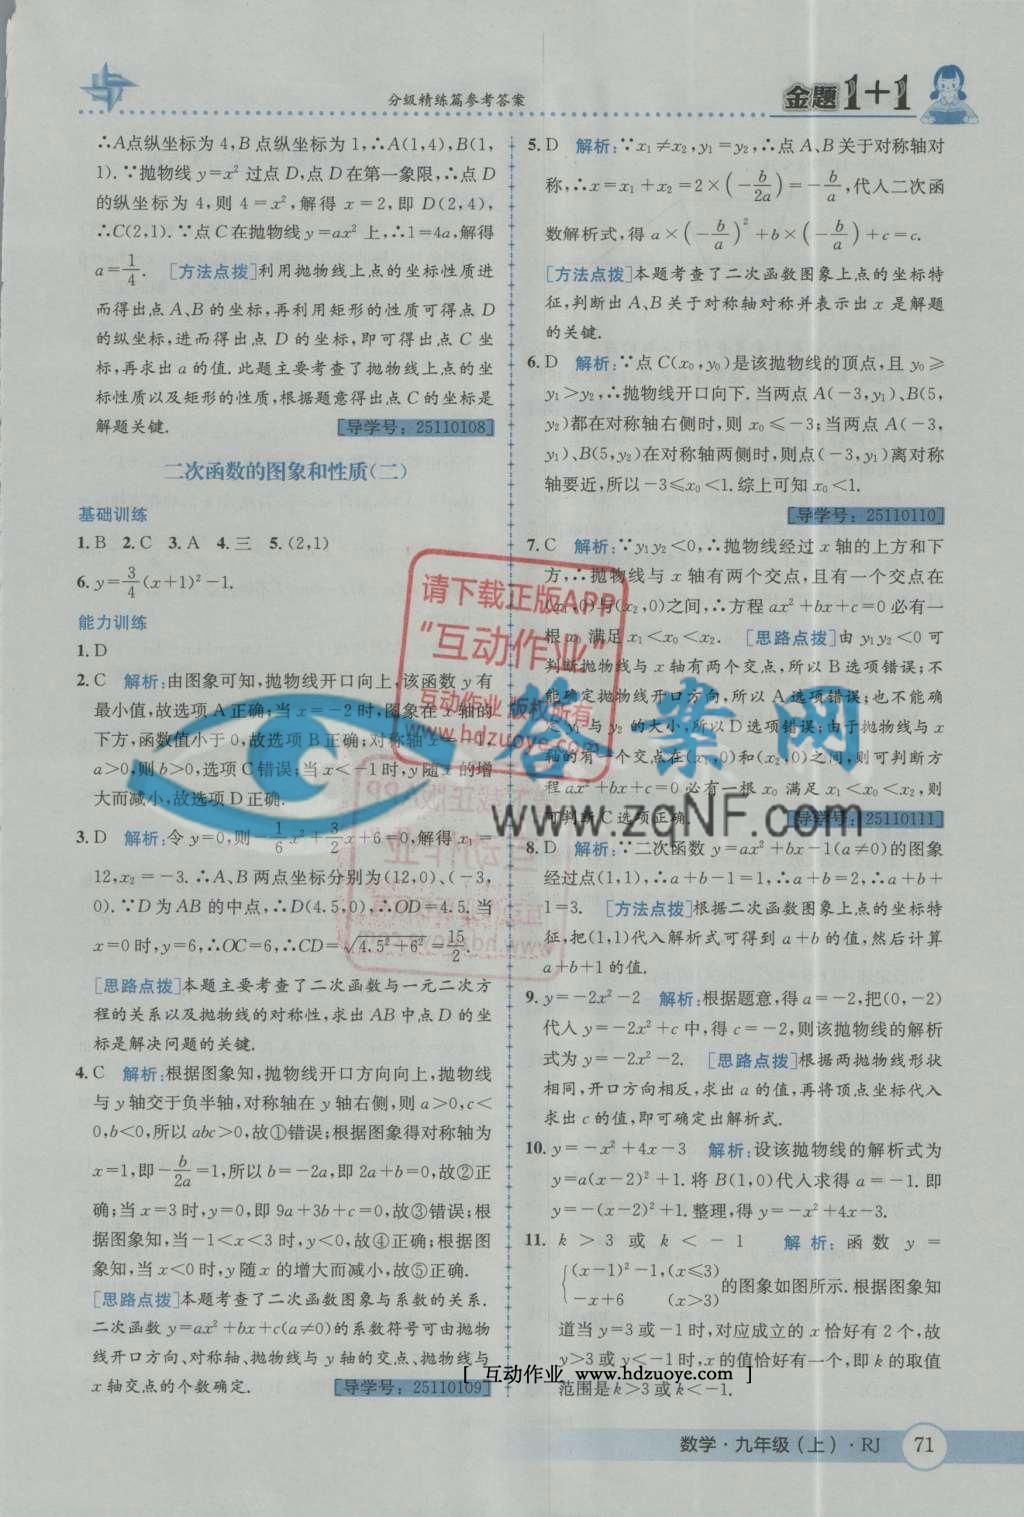 分级精练篇参考答案
金题1+1
∴A点纵坐标为4,B点纵坐标为1,∴A(1,4),B(1,
1).∵抛物线y=x²过点D,点D在第一象限,∴点D
的纵坐标为4,则4=x²,解得x=2,即D(2,4),
∴C(2,1).∵点C在抛物线y=ax²上,∴1=4a,解得
a=1/4. [方法点拨]利用抛物线上点的坐标性质进
而得出点A、B的坐标,再利用矩形的性质可得点D
的纵坐标,进而得出点D的坐标,即可得出点C坐
标,再求出a的值.此题主要考查了抛物线上点的坐
标性质以及矩形的性质,根据题意得出点C的坐标是
解题关键. [导学号:25110108]
二次函数的图象和性质(二)
基础训练
1.B 2.C 3.A 4.三 5.(2,1)
6.y=3/4(x+1)²-1.
能力训练
1.D
2.C 解析:由图象可知,抛物线开口向上,该函数y有
最小值,故选项A正确;当x=-2时,图象在x轴的
下方,函数值小于0,故选项B正确;对称轴x=-1,
a>0,则b>0,选项C错误;当x<-1时,y随x的增
大而减小,故选项D正确.
3.D 解析:令y=0,则-1/6x²+3/2x+6=0,解得x₁=
12,x₂=-3.∴A、B两点坐标分别为(12,0)、(-3,
0).∵D为AB的中点,∴D(4.5,0),∴OD=4.5.当
x=0时,y=6,∴OC=6,∴CD=√(4.5²+6²)=15/2.
[思路点拨]本题主要考查了二次函数与一元二次方
程的关系以及抛物线的对称性,求出AB中点D的坐
标是解决问题的关键.
4.C 解析:根据图象知,抛物线开口方向向上,抛物线
与y轴交于负半轴,对称轴在y轴右侧,则a>0,c<
0,b<0,所以abc>0,故①错误;根据图象得对称轴为
x=1,即-b/2a=1,所以b=-2a,即2a+b=0,故②正
确;当x=3时,y=0,即9a+3b+c=0,故③错误;根
据图象知,当-1<x<3时,y<0,故④正确;根据图
象知,当x<0时,y随x的增大而减小,故⑤正确.
[思路点拨]本题考查了二次函数图象与系数的关系.
二次函数y=ax²+bx+c(a≠0)的系数符号可由抛物
线开口方向、对称轴、抛物线与y轴的交点、抛物线与
x轴交点的个数确定. [导学号:25110109]
5.D 解析:∵x₁≠x₂,y₁=y₂,∴点A、B关于对称轴对
称,∴x=x₁+x₂=2×(-b/2a)=-b/a,代入二次函
数解析式,得a×(-b/a)²+b×(-b/a)+c=c.
[方法点拨]本题考查了二次函数图象上点的坐标特
征,判断出A、B关于对称轴对称并表示出x是解题
的关键.
6.D 解析:∵点C(x₀,y₀)是该抛物线的顶点,且y₀≥
y₁>y₂,∴抛物线开口向下.当两点A(-3,y₁)、B(5,
y₂)都在对称轴右侧时,则x₀≤-3;当两点A(-3,
y₁)、B(5,y₂)在对称轴两侧时,则点(-3,y₁)离对称
轴要近,所以-3≤x₀<1.综上可知x₀<1.
[导学号:25110110]
7.C 解析:∵y₁y₂<0,∴抛物线经过x轴的上方和下
方,∴抛物线与x轴有两个交点,且有一个交点在
(x₁,0)与(x₂,0)之间,∴方程ax²+bx+c=0必有一
根x₀满足x₁<x₀<x₂. [思路点拨]由y₁y₂<0可
判断抛物线与x轴有两个交点,所以B选项错误;不
能确定抛物线开口方向,所以A选项错误;也不能确
定y₁与y₂的大小,所以D选项错误;由于抛物线与x
轴的有一个交点在(x₁,0)和(x₂,0)之间,则可判断方
程ax²+bx+c=0必有一根x₀满足x₁<x₀<x₂,则
可判断C选项正确. [导学号:25110111]
8.D 解析:∵二次函数y=ax²+bx-1(a≠0)的图象
经过点(1,1),∴a+b-1=1,∴a+b=2,∴a+b+
1=3. [方法点拨]根据二次函数图象上点的坐标特
征,把(1,1)代入解析式可得到a+b的值,然后计算
a+b+1的值.
9.y=-2x²-2 解析:根据题意,得a=-2,把(0,-2)
代入y=-2x²+c中,得c=-2,则该抛物线的解析
式为y=-2x²-2. [思路点拨]根据两抛物线形状
相同,开口方向相反,求出a的值,再将顶点坐标代入
求出c的值,即可确定出解析式.
10.y=-x²+4x-3 解析:设该抛物线的解析式为
y=a(x-2)²+1.将B(1,0)代入求得a=-1.即
y=-(x-2)²+1.整理,得y=-x²+4x-3.
11.k>3或k<-1 解析:函数y=
{(x-1)²-1,(x≤3)
-x+6 (x>3) 的图象如图所示.根据图象知
道当y=3或-1时,对应成立的x恰好有2个,故
y>3或y<-1时,x的值恰好有一个,即k的取值
范围是k>3或k<-1.
请下载正版APP
“互动作业”
互动作业 版权所有
www.hdzuoye.com
答案网
www.zqNF.com
[ 互动作业 www.hdzuoye.com ]
数学·九年级(上)·RJ 71